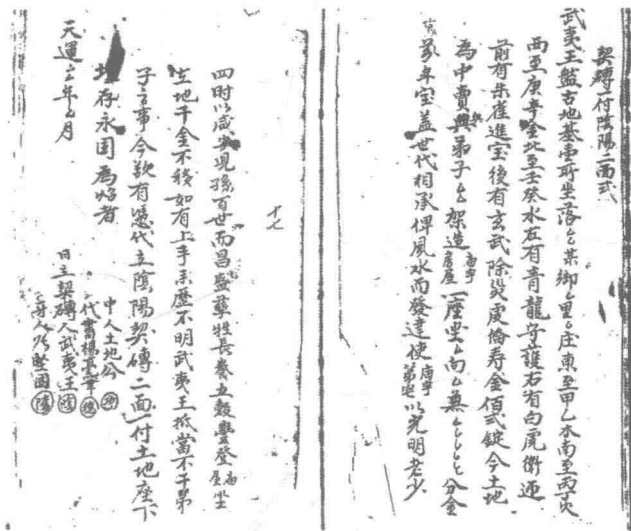 契磚一付陰陽二面式
武夷王盤古地基壹所坐落厶某鄉厶里厶庄東至甲乙木南至丙丁火
西至庚辛金北至壬癸水左有青龍守護右有白虎衛迎
前有朱雀進宝後有玄武除災處備寿金佰弍錠今土地
為中賣與弟子厶厶架造廟宇房屋一座坐厶向厶兼厶厶厶厶分金
萬年宝盖世代相承俾風水而發達使廟宇弟宅以光明老少
四時以咸安見孫百世而昌盛草牲長養五穀豐登廟屋坐
生地千金不移如有上手來歷不明武夷王抵當不干弟
子之事今欲有憑代立陰陽契磚二面一付土地座下
存永固為炤者
中人土地公
代書楊亭筆
日主契磚人武夷王
天運厶年厶月
十七